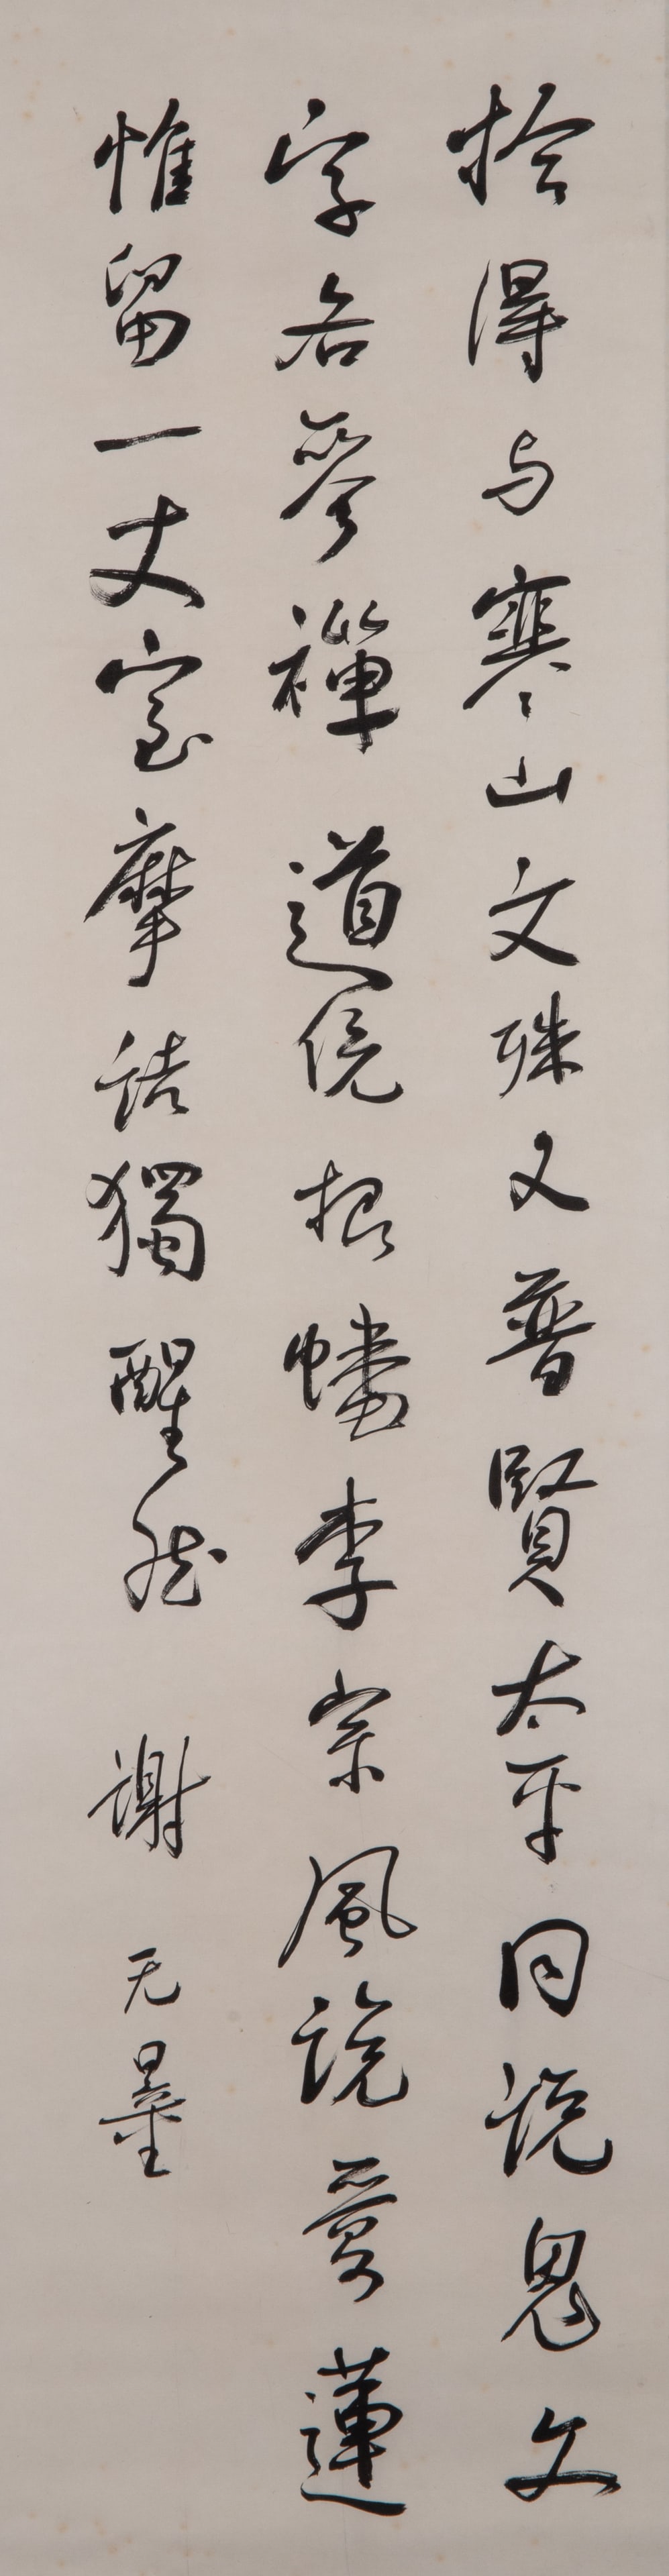 拾得与寒山文殊又普賢太平同說鬼文
字各參禪道根蟠李宗風說愛蓮
惟留一丈室摩詰獨醒然 謝无量